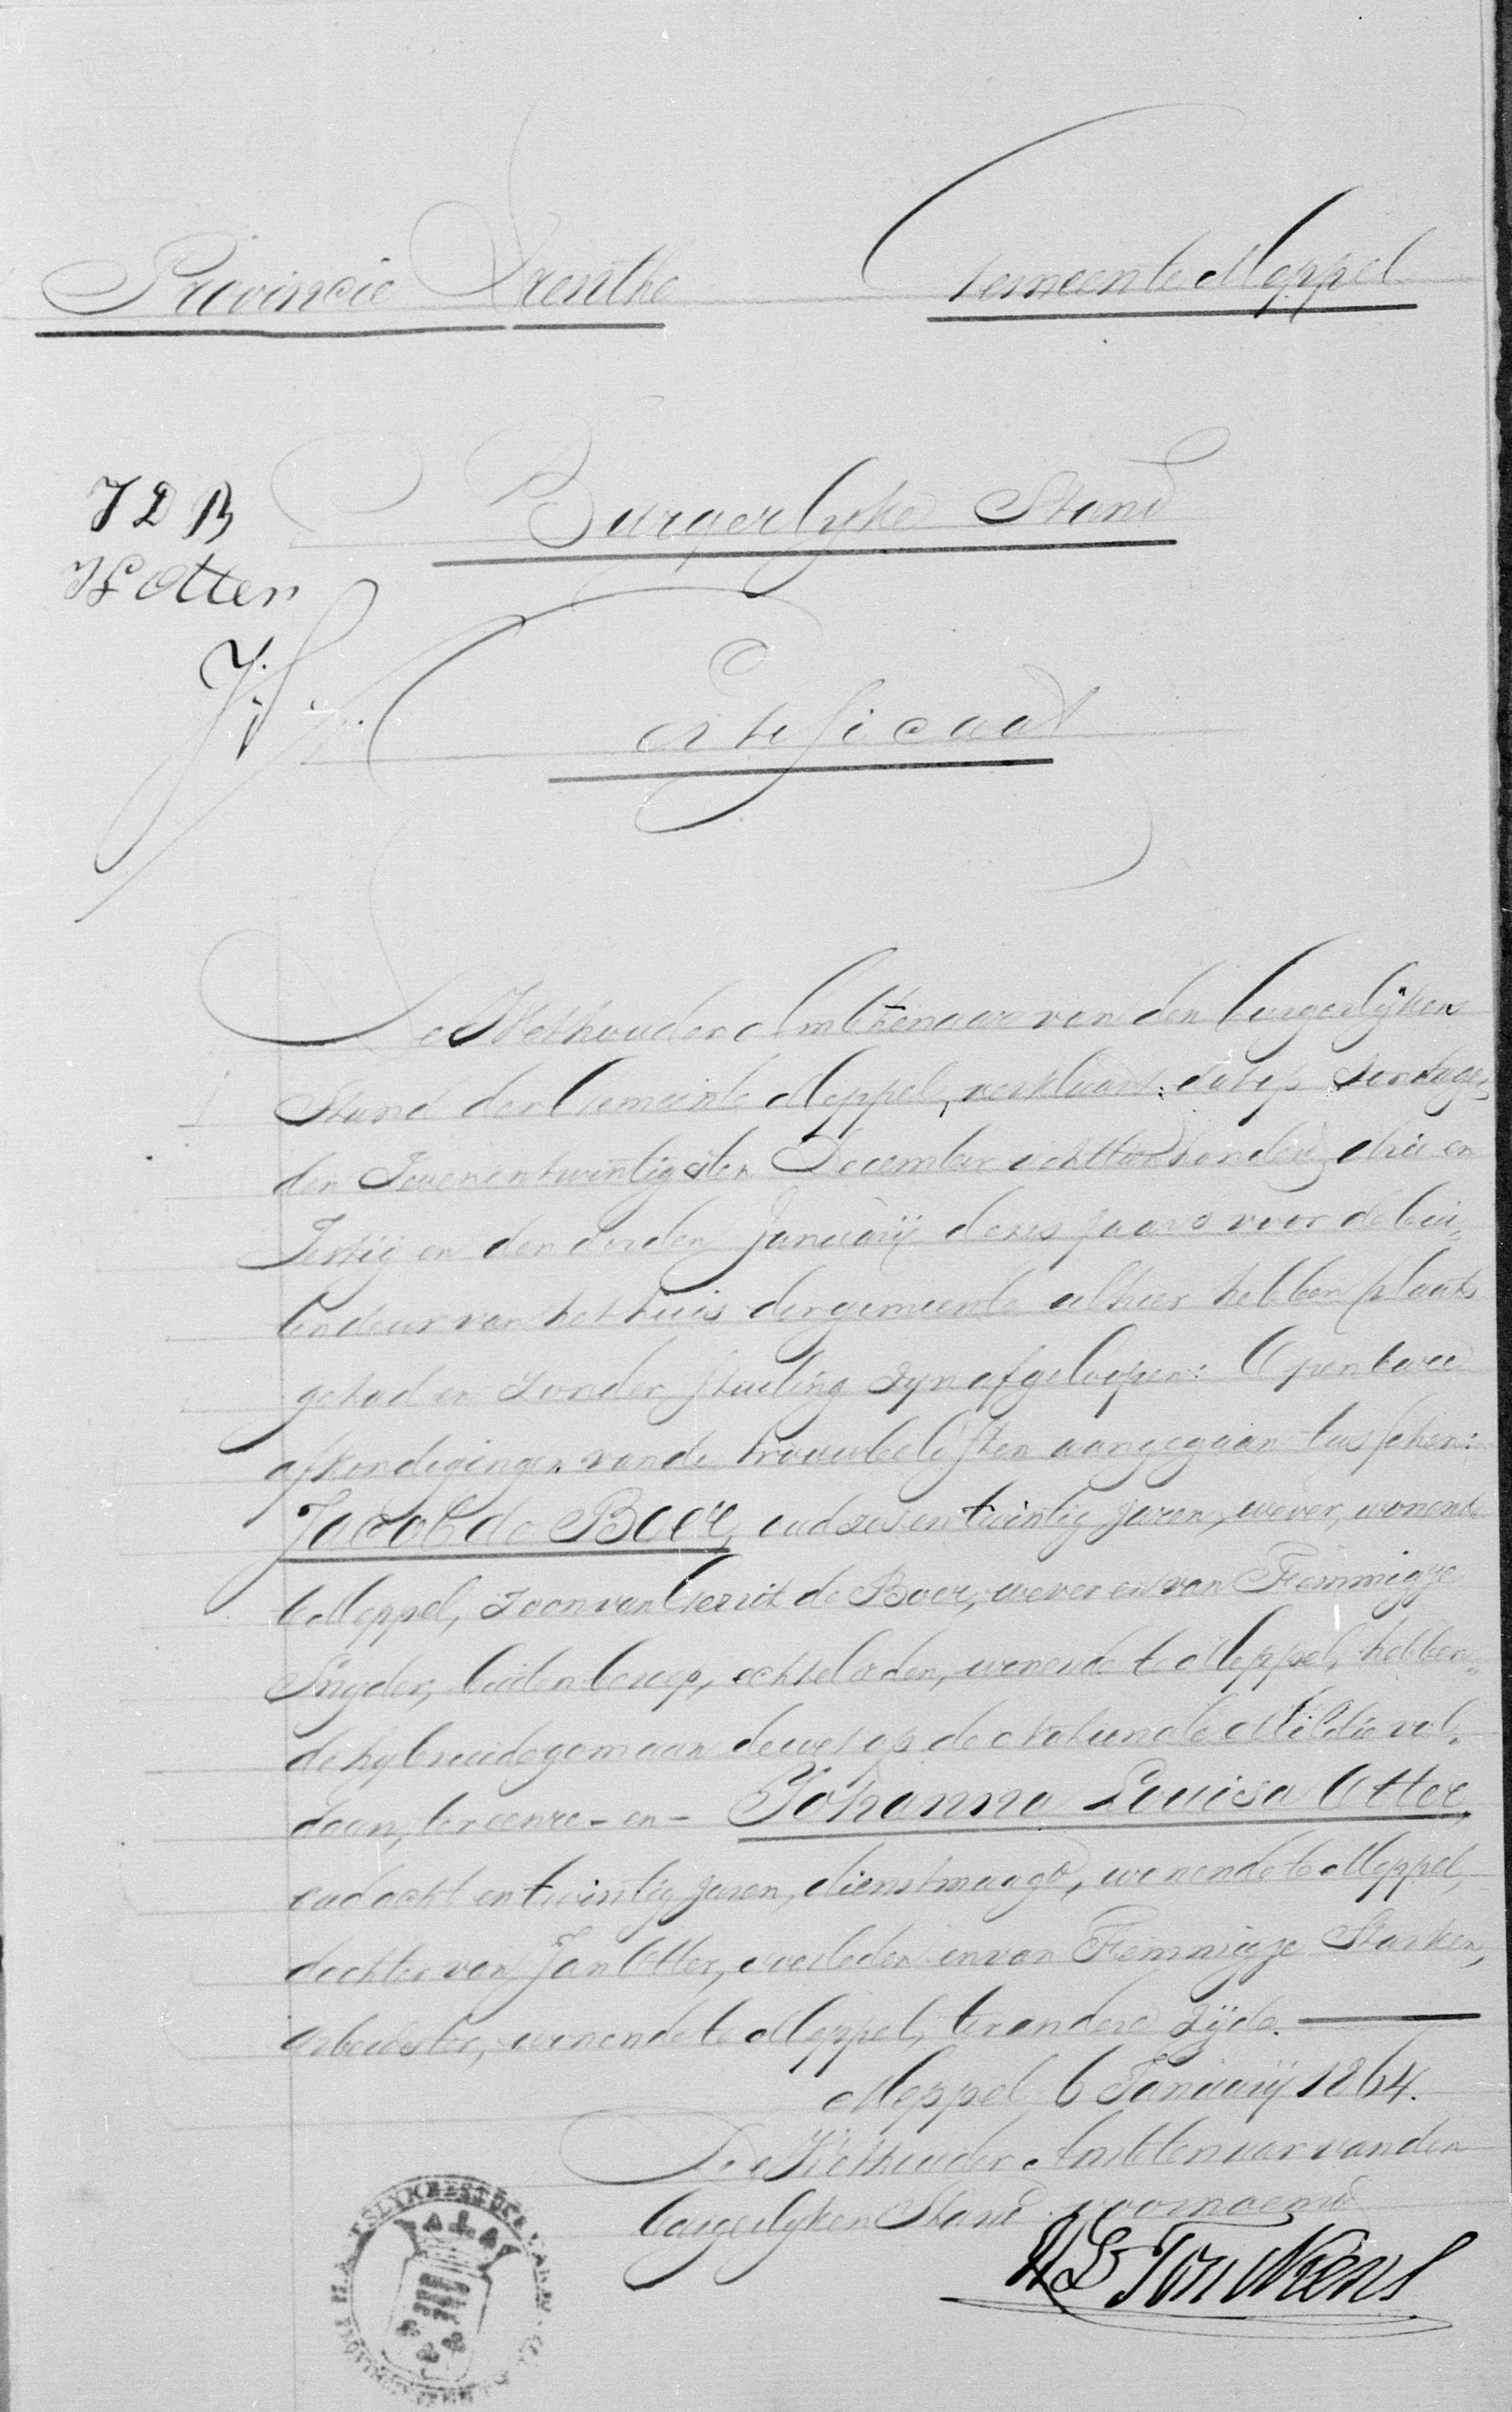 Provincie Drenthe
Gemeente Meppel
J D B
Burgerlyke Stand
JL Otter
Certificaat
De Wethouder Ambtenaar van den burgerlijken
Stand der Gemeente Meppel, verklaart: dat op Zondagen
den Zevenentwintigsten December achttienhonderd drie en
Zestig en den derden Januarij dezes jaars voor de bui„
tendeur van het huis der gemeente alhier hebben plaats
gehad en zonder stuiting zyn afgeloopen: Open twee
afkondigingen van de trouwbeloften aangegaan tusschen:
Jacob de Boer, oud zes en twintig jaren, wever, wonende
te Meppel, zoon van Gerrit de Boer, wever en van Femmigje
Snyder, buiten beroep, echtelieden, wonende te Meppel, hebben„
de hy bruidegom aan de wet op de Nationale Militie vol„
daan, ter eenre - en - Johanna Louisa Otter,
oud acht en twintig jaren, dienstmaagd, wonende te Meppel,
dochter van Jan Otter, overleden en van Femmigje Starken,
arbeidster, wonende te Meppel, ter andere zijde.
Meppel 6 Januarij 1864.
De Wethouder Ambtenaar van den
burgerlyken Stand voornoemd